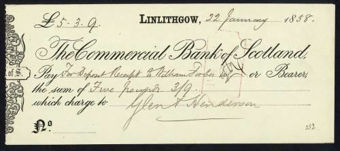 £5-3-9. LINLITHGOW, 22 January 1838.
The Commercial Bank of Scotland,
Pay For Deposit Receipt to William Forbes or Bearer
the sum of Five pounds 3/9
which charge to Glen & Henderson
No.